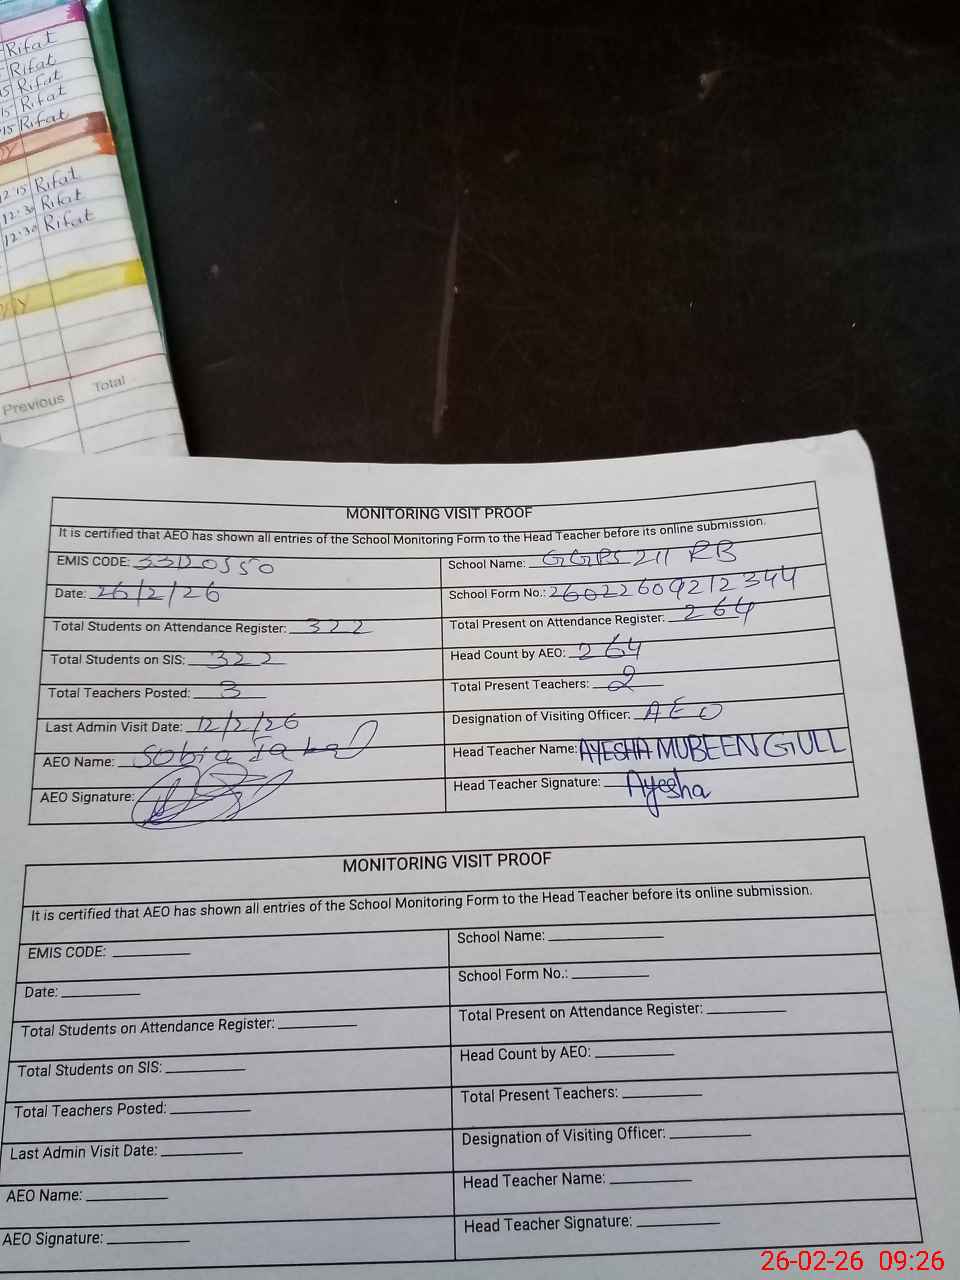 Rifat
Rifat
15 Rifat
15 Rifat
15 Rifat
12:15 Rifat
12:30 Rifat
12:30 Rifat
Previous Total
MONITORING VISIT PROOF
It is certified that AEO has shown all entries of the School Monitoring Form to the Head Teacher before its online submission.
EMIS CODE: 33120550 School Name: GGPS 211 RB
Date: 26/2/26 School Form No.: 26022609212344
Total Students on Attendance Register: 322 Total Present on Attendance Register: 264
Total Students on SIS: 322 Head Count by AEO: 264
Total Teachers Posted: 3 Total Present Teachers: 2
Last Admin Visit Date: 12/2/26 Designation of Visiting Officer: AEO
AEO Name: Sobia Head Teacher Name: AYESHA MUBEEN GULL
AEO Signature: Head Teacher Signature: Ayesha
MONITORING VISIT PROOF
It is certified that AEO has shown all entries of the School Monitoring Form to the Head Teacher before its online submission.
EMIS CODE: School Name:
Date: School Form No.:
Total Students on Attendance Register: Total Present on Attendance Register:
Total Students on SIS: Head Count by AEO:
Total Teachers Posted: Total Present Teachers:
Last Admin Visit Date: Designation of Visiting Officer:
AEO Name: Head Teacher Name:
AEO Signature: Head Teacher Signature:
26-02-26 09:26